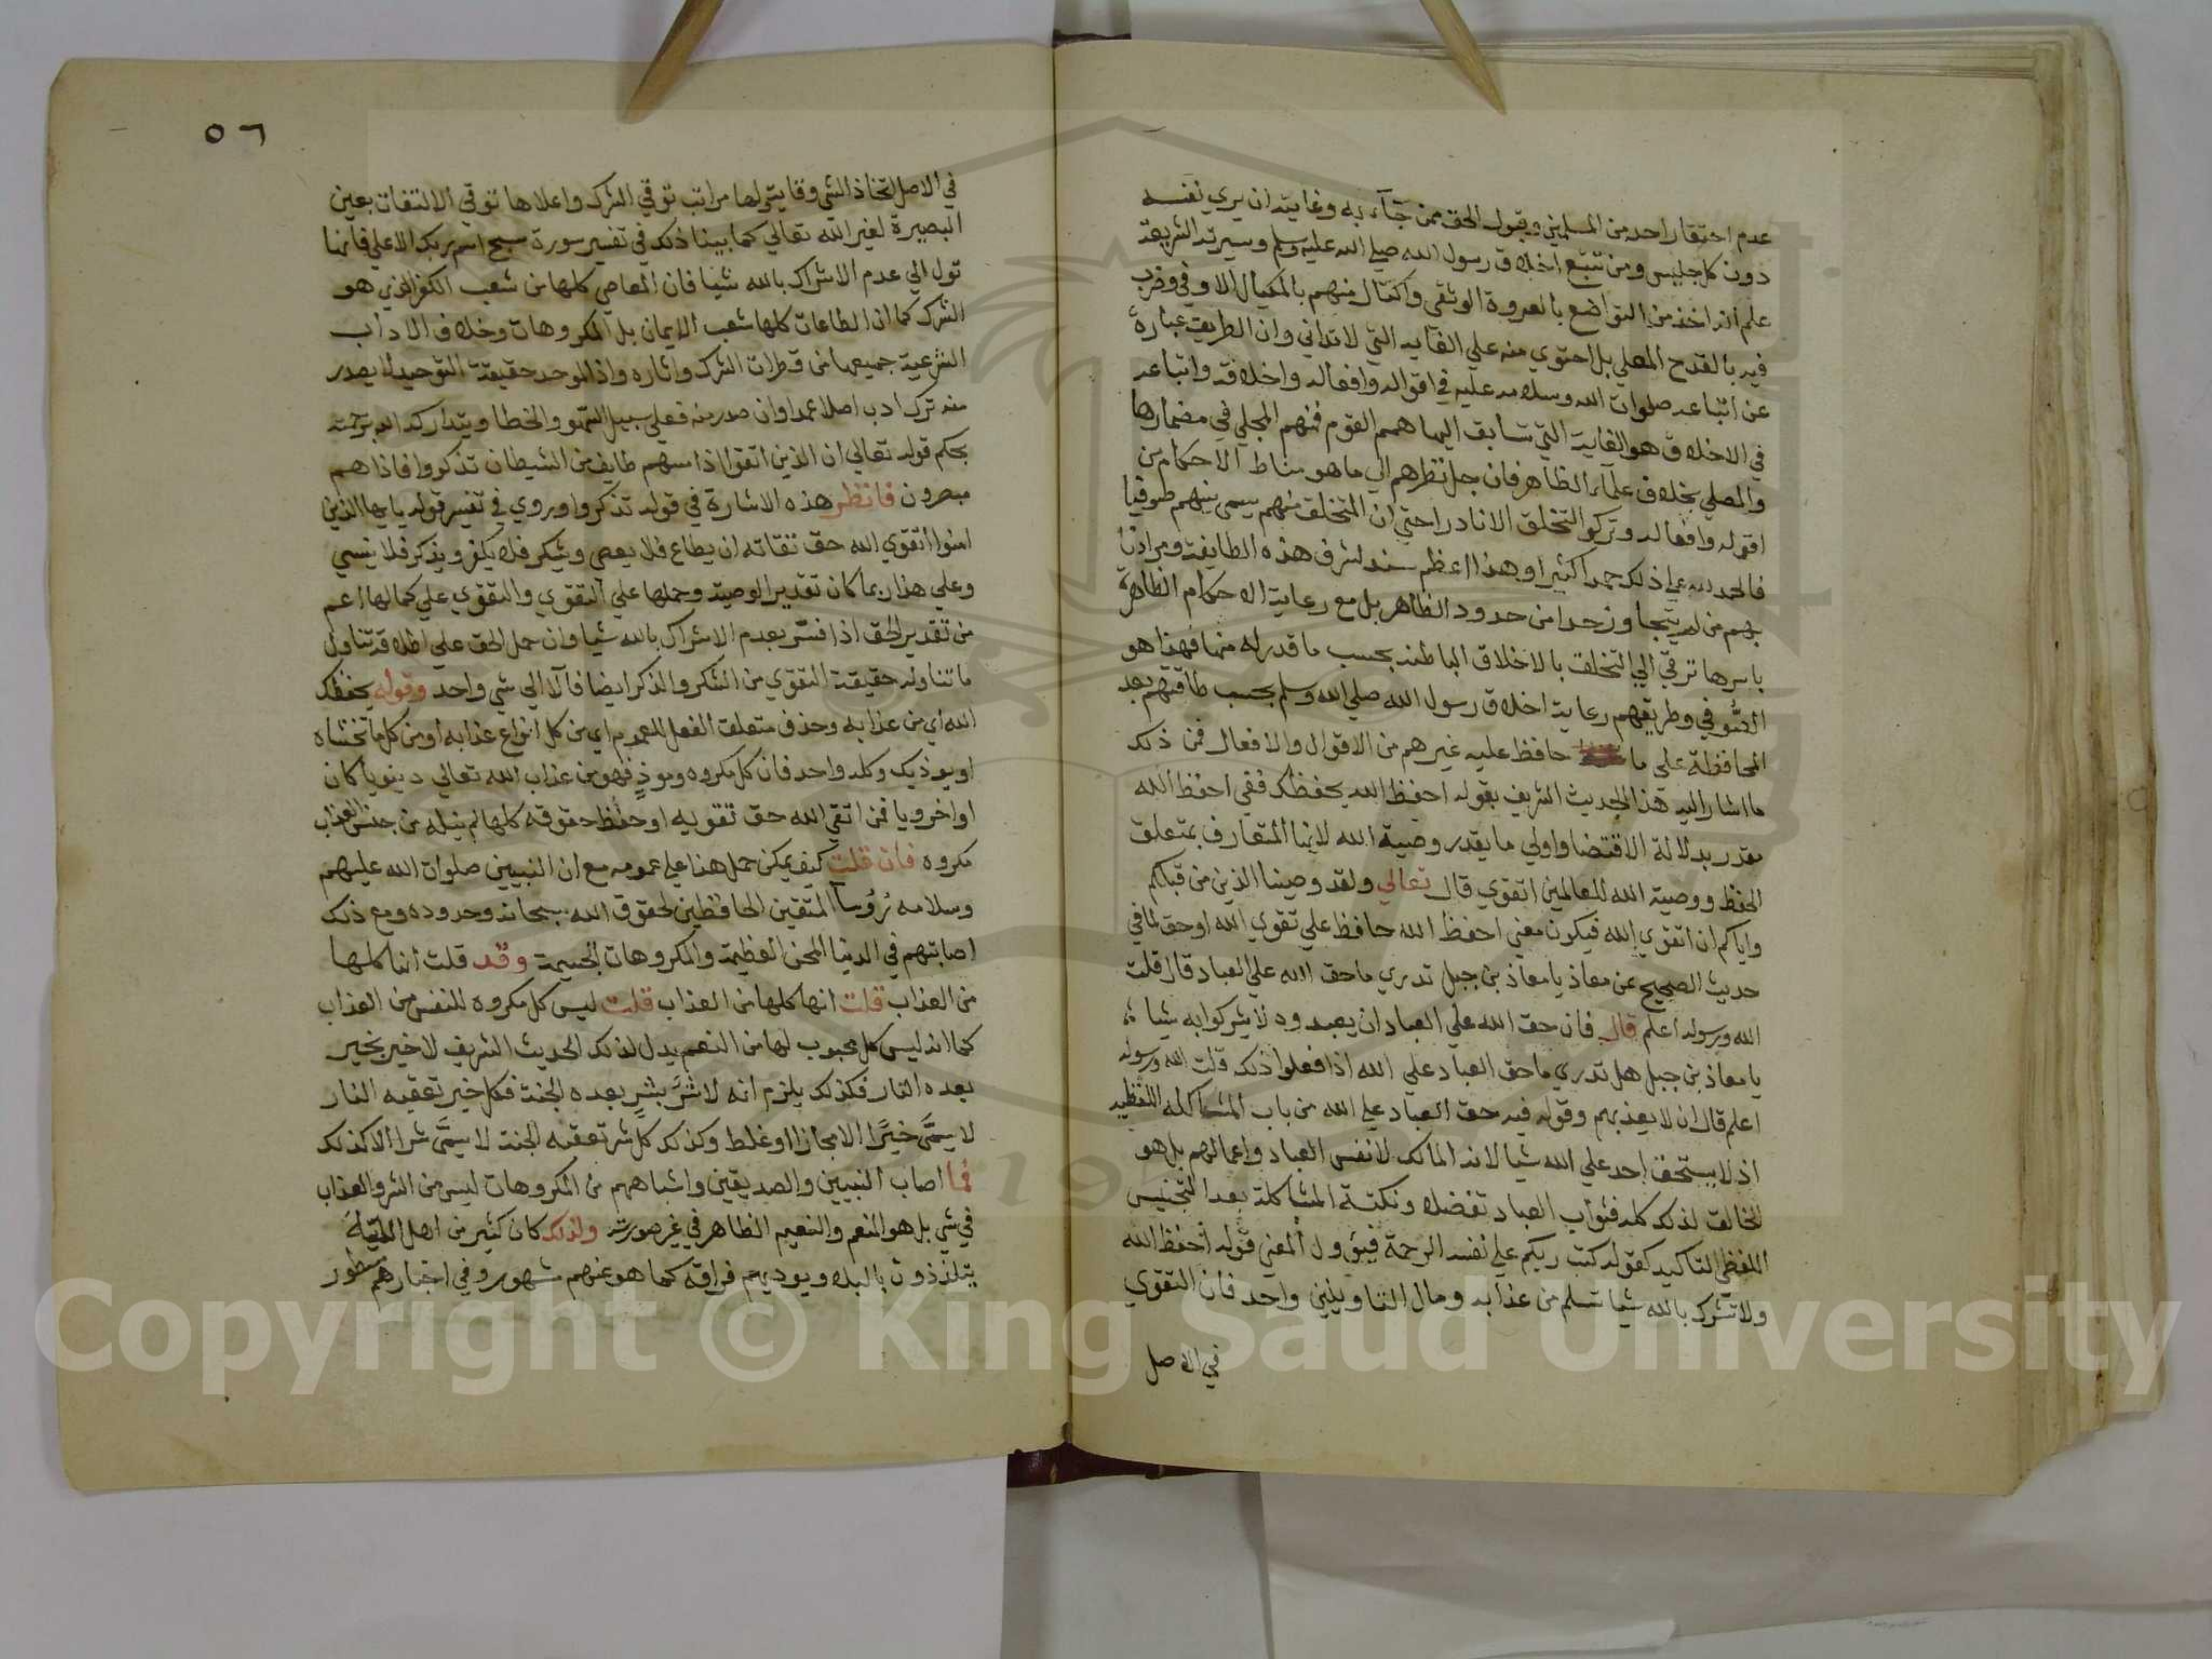 عدم احتقار احد من المسلمين وقبول الحق ممن جآء به وغايته ان يري نفسه
دون كل جليس ومن تتبع اخلاق رسول الله صلي الله عليه وسلم وسيرته الشريفة
علم انه اخذ من التواضع بالعروة الوثقي واكتال منهم بالمكيال الاوفي وضرب
فيه بالقدح المعلي بل احتوي منه علي الغايه التي لاتداني وان الطريق عبارة
عن اتباعه صلوات الله وسلامه عليه في اقواله وافعاله واخلاقه واتباعه
في الاخلاق هو الغاية التي تسابق اليها همم القوم فمنهم المجلي في مضمارها
والمصلي بخلاف علمآء الظاهر فان جل نظرهم الي ما هو مناط الاحكام من
اقوله وافعاله وتركوا التخلق الا نادرا حتي ان المتخلق منهم يسمي بينهم صوفيا
فالحمد لله علي ذلك حمدا كثيرا وهذا اعظم سند لشرف هذه الطايفة ومرادنا
بهم من لم يتجاوز حدا من حدود الظاهر بل مع رعاية الاحكام الظاهرة
باسرها ترقي الي التخلق بالاخلاق الباطنه بحسب ما قدر له منها فهذا هو
الصوفي وطريقهم رعاية اخلاق رسول الله صلي الله وسلم بحسب طاقتهم بعد
المحافظة علي ما حافظ عليه غيرهم من الاقوال والافعال فمن ذلك
ما اشار اليه هذا الحديث الشريف بقوله احفظ الله يحفظك ففي احفظ الله
مقدر بدلالة الاقتضا واولي ما يقدر وصية الله لانها المتعارف بمتعلق
الحفظ ووصية الله للعالمين التقوي قال تعالي ولقد وصينا الذين من قبلكم
واياكم ان اتقوا الله فيكون معني احفظ الله حافظ علي تقوي الله او حق لما في
حديث الصحيح عن معاذ يا معاذ بن جبل تدري ما حق الله علي العباد قال قلت
الله ورسوله اعلم قال فان حق الله علي العباد ان يعبدوه ولا يشركوا به شيا
يا معاذ بن جبل هل تدري ما حق العباد علي الله اذا فعلوا ذلك قلت الله ورسوله
اعلم قال ان لا يعذبهم وقوله فيه حق العباد علي الله من باب المشاكله اللفظيه
اذ لا يستحق احد علي الله شيا لانه المالك لانفس العباد واعمالهم بل هو
الخالق لذلك كله فثواب العباد تفضلا ونكتة المشاكلة بعد التجنيس
اللفظي التاكيد كقوله كتب ربكم علي نفسه الرحمة فيؤول المعني قوله احفظ الله
ولا تشرك بالله شيا تسلم من عذابه ومال التاويلين واحد فان التقوي
في الاصل
٥٦
في الاصل اتخاذ الشي وقاية ولها مراتب توقي الشرك واعلاها توقي الالتفات بعين
البصيرة لغير الله تعالي كما بينا ذلك في تفسير سورة سبح اسم ربك الاعلي فانها
تول الي عدم الاشراك بالله شيا فان المعاصي كلها من شعب الكفر الذي هو
الشرك كما ان الطاعات كلها شعب الايمان بل المكروهات وخلاف الاداب
الشرعية جميعها من قطرات الشرك واثاره واذا الموحد حقيقة التوحيد لا يصدر
منه ترك ادب اصلا عمدا وان صدر منه فعلي سبيل السهو والخطا ويتداركه الله برحمته
بحكم قوله تعالي ان الذين اتقوا اذا مسهم طايف من الشيطان تذكروا فاذا هم
مبصرون فانظر هذه الاشارة في قوله تذكروا وروي في تفسير قوله يايها الذين
امنوا اتقوي الله حق تقاته ان يطاع فلا يعصي ويشكر فلا يكفر ويذكر فلا ينسي
وعلي هذا ربما كان تقدير الوصية وحملها علي التقوي والتقوي علي كمالها اعم
من تقدير الحق اذا فسر بعدم الاشراك بالله شيا وان حمل الحق علي اطلاقه تناول
ما تناوله حقيقة التقوي من الشكر والذكر ايضا فآلا الي شي واحد وقوله يحفظك
الله اي من عذابه وحذف متعلق الفعل للعموم اي من كل انواع عذابه او من كل ما تخشاه
او يوذيك وكله واحد فان كل مكروه وموذٍ فهو من عذاب الله تعالي دينويا كان
او اخرويا فمن اتقي الله حق تقويه او حفظ حقوقه كلها لم ينله من جنس العذاب
مكروه فان قلت كيف يمكن حمل هذا علي عمومه مع ان النبيين صلوات الله عليهم
وسلامه رُوُسآ المتقين الحافظين لحقوق الله سبحانه وحدوده ومع ذلك
اصابتهم في الدنيا المحن العظيمة والمكروهات الجسيمة وقد قلت انها كلها
من العذاب قلت انها كلها من العذاب قلت ليس كل مكروه للنفس من العذاب
كما انه ليس كل محبوب لها من النعم يدل لذلك الحديث الشريف لا خير بخير
بعده النار فكذلك يلزم انه لا شَرَّ بشرٍ بعده الجنة فكل خير تعقبه النار
لا يسمَّي خيرًا الا مجازا او غلط وكذلك كل شر تعقبه الجنة لا يسمَّي شرا الا كذلك
فما اصاب النبيين والصديقين واشباههم من المكروهات ليس من الشر والعذاب
في شي بل هو المنعم والنعيم الظاهر في غير صورته ولذلك كان كثير من اهل
يتلذذون بالبلاء ويوذيهم فراقه كما هو عنهم مشهور وفي اخبارهم مسطور
Copyright © King Saud University